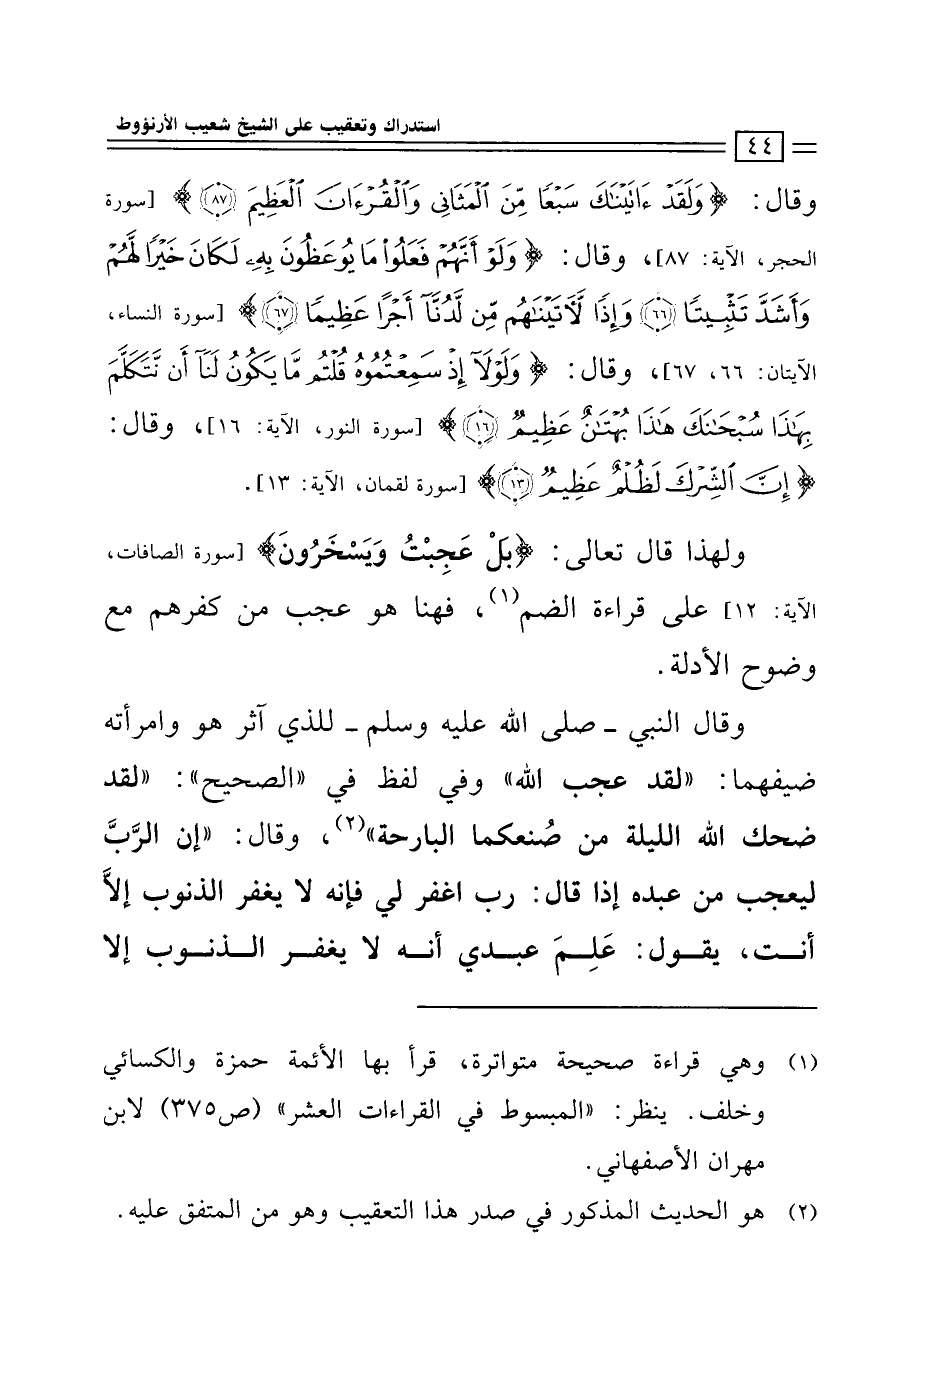 استدراك وتعقيب على الشيخ شعيب الأرنؤوط
٤٤
وقال: ﴿وَلَقَدْ ءَاتَيْنَٰكَ سَبْعًا مِّنَ ٱلْمَثَانِى وَٱلْقُرْءَانَ ٱلْعَظِيمَ (٨٧)﴾ [سورة
الحجر، الآية: ٨٧]، وقال: ﴿وَلَوْ أَنَّهُمْ فَعَلُوا۟ مَا يُوعَظُونَ بِهِۦ لَكَانَ خَيْرًا لَّهُمْ
وَأَشَدَّ تَثْبِيتًا (٦٦) وَإِذًا لَّأَتَيْنَٰهُم مِّن لَّدُنَّآ أَجْرًا عَظِيمًا (٦٧)﴾ [سورة النساء،
الآيتان: ٦٦، ٦٧]، وقال: ﴿وَلَوْلَآ إِذْ سَمِعْتُمُوهُ قُلْتُم مَّا يَكُونُ لَنَآ أَن نَّتَكَلَّمَ
بِهَٰذَا سُبْحَٰنَكَ هَٰذَا بُهْتَٰنٌ عَظِيمٌ (١٦)﴾ [سورة النور، الآية: ١٦]، وقال:
﴿إِنَّ ٱلشِّرْكَ لَظُلْمٌ عَظِيمٌ (١٣)﴾ [سورة لقمان، الآية: ١٣].
ولهذا قال تعالى: ﴿بَلْ عَجِبْتُ وَيَسْخَرُونَ﴾ [سورة الصافات،
الآية: ١٢] على قراءة الضم(١)، فهنا هو عجب من كفرهم مع
وضوح الأدلة.
وقال النبي ـ صلى الله عليه وسلم ـ للذي آثر هو وامرأته
ضيفهما: «لقد عجب الله» وفي لفظ في «الصحيح»: «لقد
ضحك الله الليلة من صُنعكما البارحة»(٢)، وقال: «إن الرَّبَّ
ليعجب من عبده إذا قال: رب اغفر لي فإنه لا يغفر الذنوب إلاَّ
أنت، يقول: عَلِمَ عبدي أنه لا يغفر الذنوب إلا
(١) وهي قراءة صحيحة متواترة، قرأ بها الأئمة حمزة والكسائي
وخلف. ينظر: «المبسوط في القراءات العشر» (ص٣٧٥) لابن
مهران الأصفهاني.
(٢) هو الحديث المذكور في صدر هذا التعقيب وهو من المتفق عليه.